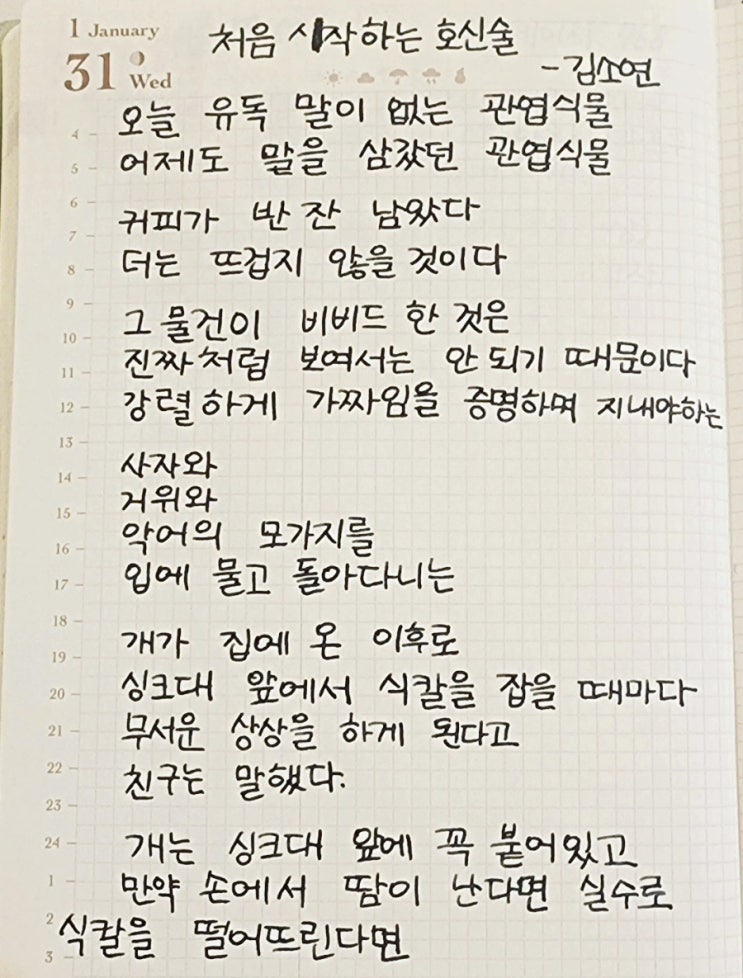 1 January
31 Wed
처음 시작하는 호신술
-김소연
오늘 유독 말이 없는 관엽식물
어제도 말을 삼갔던 관엽식물
커피가 반 잔 남았다
더는 뜨겁지 않을 것이다
그 물건이 비비드 한 것은
진짜처럼 보여서는 안 되기 때문이다
강렬하게 가짜임을 증명하며 지내야하는
사자와
거위와
악어의 모가지를
입에 물고 돌아다니는
개가 집에 온 이후로
싱크대 앞에서 식칼을 잡을 때마다
무서운 상상을 하게 된다고
친구는 말했다.
개는 싱크대 앞에 꼭 붙어있고
만약 손에서 땀이 난다면 실수로
식칼을 떨어뜨린다면
4
5
6
7
8
9
10
11
12
13
14
15
16
17
18
19
20
21
22
23
24
1
2
3